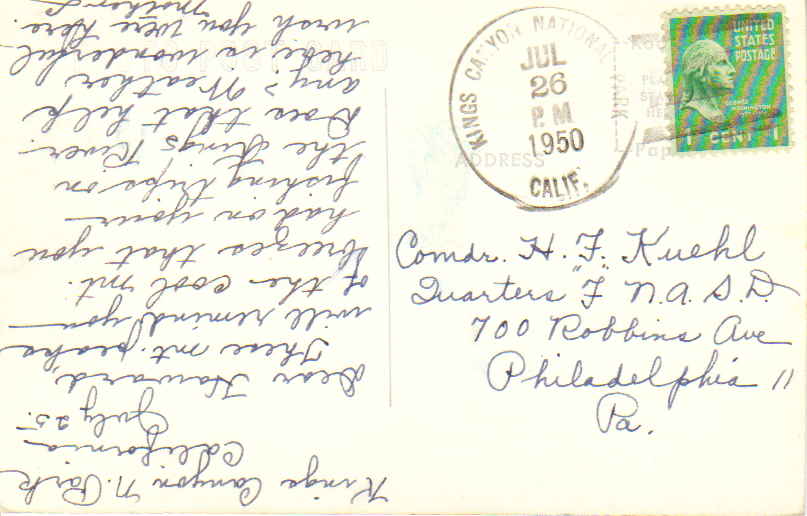 Kings Canyon N. Park
California
July 25.
Dear Howard,
These mt. peaks
will remind you
of the cool mt.
breezes that you
had on your
fishing trips on
the Kings River.
Does that help
any? Weather
here is wonderful
wish you were here.
Mother
KINGS CANYON NATIONAL PARK
JUL
26
P M
1950
CALIF.
UNITED
STATES
POSTAGE
GEORGE
WASHINGTON
1 CENT 1
ADDRESS
Comdr. H. F. Kuehl
Quarters "F" N.A.S.D.
700 Robbins Ave
Philadelphia 11
Pa.